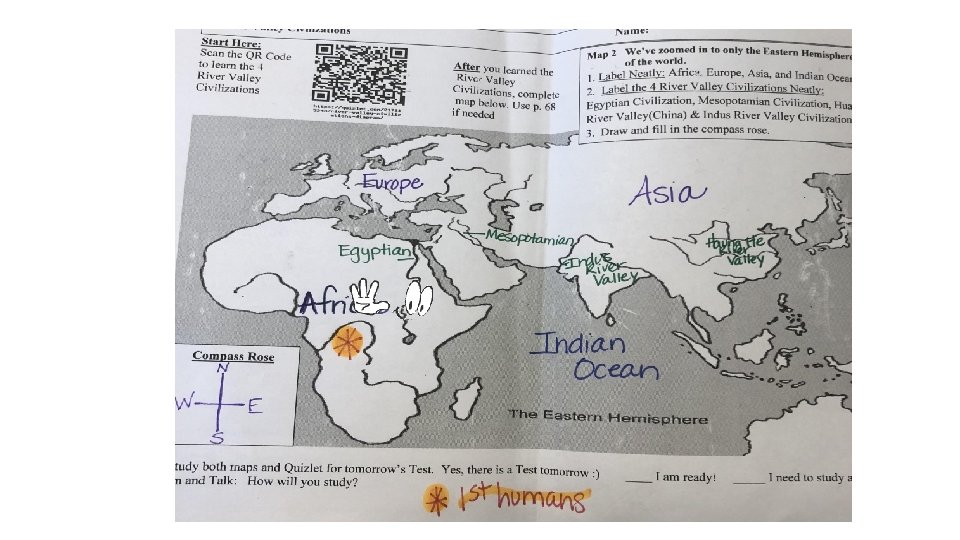 Name:
Start Here:
Scan the QR Code
to learn the 4
River Valley
Civilizations
After you learned the
River Valley
Civilizations, complete
map below. Use p. 68
if needed
Map 2 We've zoomed in to only the Eastern Hemisphere
of the world.
1. Label Neatly: Africa, Europe, Asia, and Indian Ocean
2. Label the 4 River Valley Civilizations Neatly:
Egyptian Civilization, Mesopotamian Civilization, Hua
River Valley(China) & Indus River Valley Civilization
3. Draw and fill in the compass rose.
Europe
Asia
Egyptian
Mesopotamian
Indus
River
Valley
River
Valley
Indian
Ocean
The Eastern Hemisphere
Compass Rose
N
W
E
S
tudy both maps and Quizlet for tomorrow's Test. Yes, there is a Test tomorrow :)
____ I am ready!
_____ I need to study a
n and Talk: How will you study?
1st humans